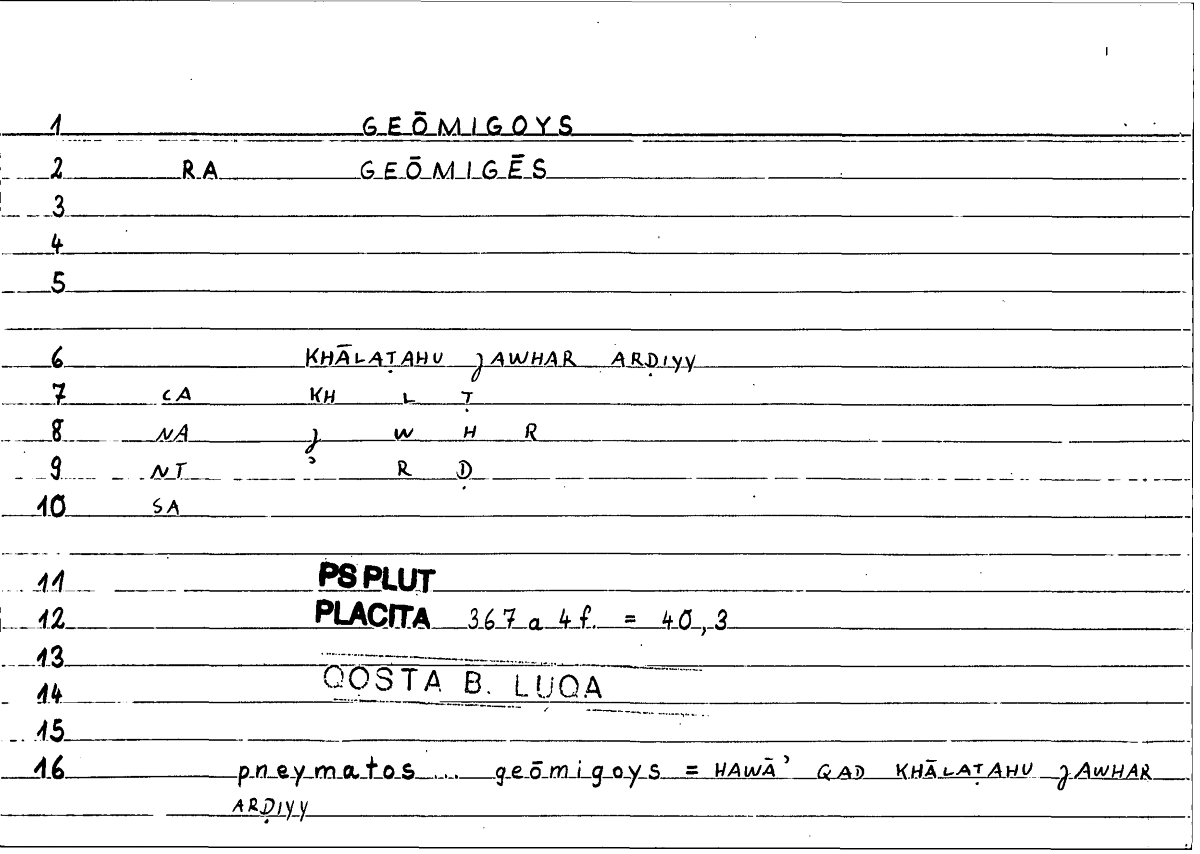 1 GEŌMIGOYS
2 RA GEŌMIGĒS
3
4
5
6 KHĀLAṬAHU JAWHAR ARḌIYY
7 CA KH L Ṭ
8 NA J W H R
9 NT ʾ R Ḍ
10 SA
11 PS PLUT
12 PLACITA 367 a 4 f. = 40,3
13
14 QOSTA B. LUQA
15
16 pneymatos ... geōmigoys = HAWĀʾ QAD KHĀLAṬAHU JAWHAR
ARḌIYY